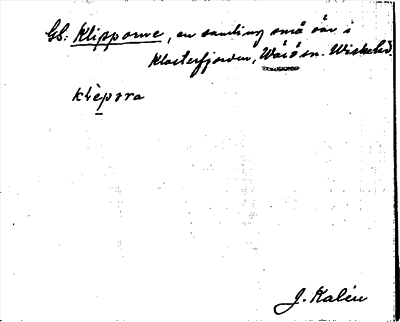 GS: Klipporne, en samling små öar i
Klosterfjorden, Wärö sn. Wiske hd.
klèpɔra
J. Kalén